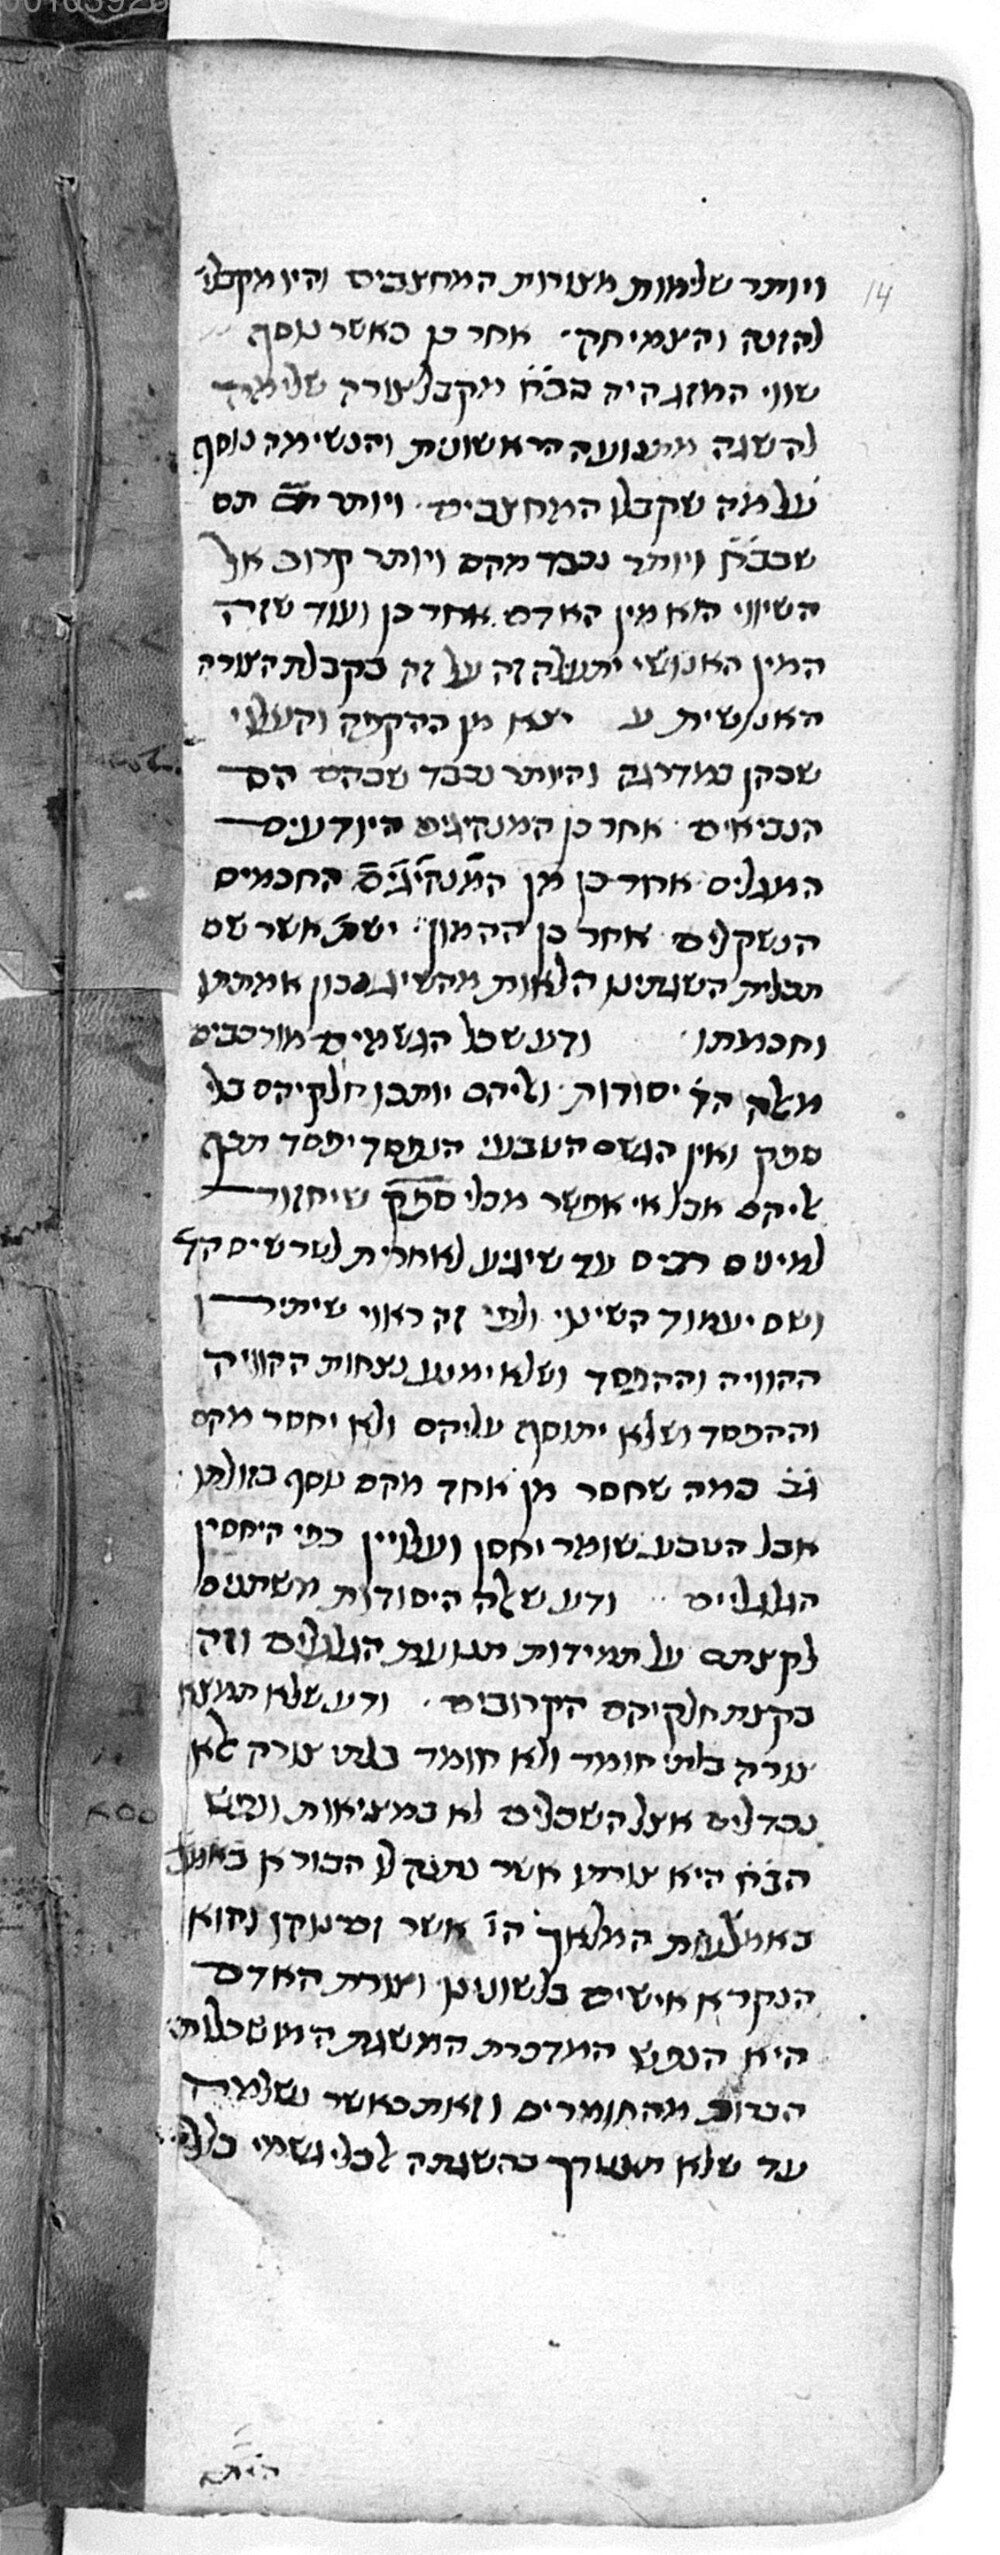 14
ויותר שלימות מצורות המחצבים והיו מקבלי
להזנה והצמיחה אחר כן כאשר נוסף
שווי המזג היה בב״ח מקבל צורה שלימה
להשגה מתנועה הראשונית והנשימה נוסף
על מה שקבלו המחצבים ויותר תם
שבב״ח ויותר נכבד מהם ויותר קרוב אל
השיווי הוא מין האדם אחר כן ועוד שזה
המין האנושי יתעלה זה על זה בקבלת הצורה
האנושית ע יצא מן ההקפה והעלוי
שבהן במדרגה והיותר נכבד שבהם הם
הנביאים אחר כן המנהיגים היודעים
המעלים אחר כן מן המנהיגים החכמים
הנשקלים אחר כן ההמון ישת׳ אשר שם
תכלית השגתינו הלאות מהשיג נכון אמתתו
וחכמתו ודע שכל הגשמים מורכבים
מאלה הד׳ יסודות ואליהם יותכו חלקיהם בלי
ספק ואין הגשם הטבעי הנפסד יפסד תכף
אליהם אבל אי אפשר מבלי ספק שיחזור
למינים רבים עד שיגיע לאחרית לשרשים הד׳
ושם יעמוד השינוי ולפי זה ראוי שיתיר ן
ההוויה וההפסד ושלא ימנע נצחות ההוויה
וההפסד ושלא יתוסף עליהם ולא יחסר מהם
ג״כ כמה שחסר מן אחד מהם נוסף בזולתו
אבל הטבע שומר יחסן ועלויין כפי היחסין
הגלגליים ודע שאלה היסודות משתנים
לקצתם על תמידות תנועת הגלגלים וזה
בקצת חלקיהם הקרובים ודע שלא תמצא
צורה בלתי חומר ולא חומר בלתי צורה אלא
נבדלים אצל השכלים לא במציאות ונפש
הב״ח היא צורתו אשר נתנה לו הבורא באמצ
באמצעות המלאך הי׳ אשר זכרנוהו והוא
הנקרא אישים בלשונינו וצורת האדם
היא הנפש המדברת המשגת המושכלות
הברות מהחומרים וזאת כאשר נשלמה
עד שלא תצטרך בהשגתה לכלי גשמי כללי